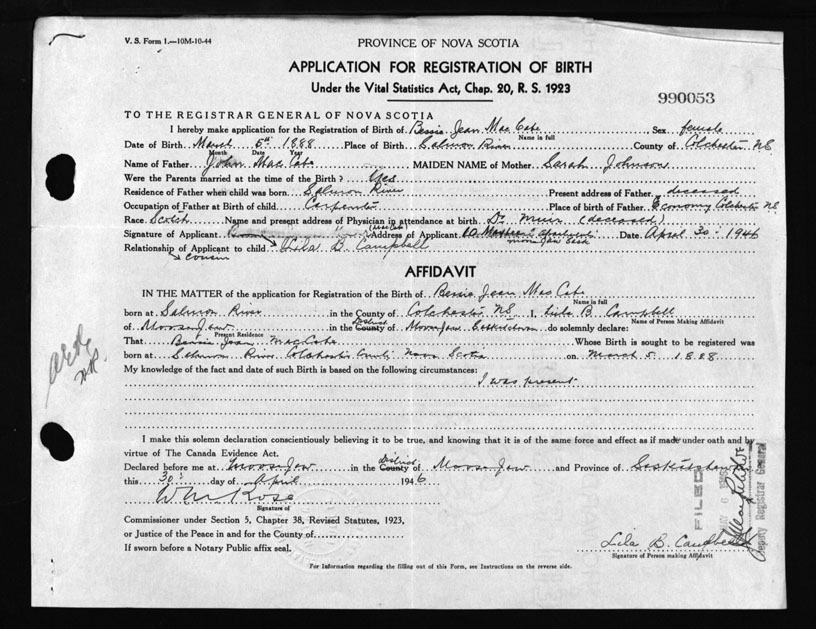 V. S. Form 1.—10M-10-44
PROVINCE OF NOVA SCOTIA
APPLICATION FOR REGISTRATION OF BIRTH
Under the Vital Statistics Act, Chap. 20, R. S. 1923
990053
TO THE REGISTRAR GENERAL OF NOVA SCOTIA
I hereby make application for the Registration of Birth of Bessie Jean MacCabe Sex female
Name in full
Date of Birth March 5th 1888 Place of Birth Salmon River County of Colchester NS
Month Date Year
Name of Father John MacCabe MAIDEN NAME of Mother Sarah Johnson
Were the Parents married at the time of the Birth? Yes
Residence of Father when child was born Salmon River Present address of Father deceased
Occupation of Father at Birth of child Carpenter Place of birth of Father Economy Colchester NS
Race Scotch Name and present address of Physician in attendance at birth Dr Muir (deceased)
Signature of Applicant Address of Applicant Moose Jaw Sask Date April 30 1946
Relationship of Applicant to child Lila B. Campbell
cousin
AFFIDAVIT
IN THE MATTER of the application for Registration of the Birth of Bessie Jean MacCabe
Name in full
born at Salmon River in the County of Colchester NS I, Lila B. Campbell
Name of Person Making Affidavit
of Moose Jaw in the District County of Moose Jaw Saskatchewan do solemnly declare:
Present Residence
That Bessie Jean MacCabe Whose Birth is sought to be registered was
born at Salmon River Colchester County Nova Scotia on March 5 1888
My knowledge of the fact and date of such Birth is based on the following circumstances:
I was present
I make this solemn declaration conscientiously believing it to be true, and knowing that it is of the same force and effect as if made under oath and by
virtue of The Canada Evidence Act.
Declared before me at Moose Jaw in the District County of Moose Jaw and Province of Saskatchewan
this 30 day of April 1946
Wm Rose
Signature of
Commissioner under Section 5, Chapter 38, Revised Statutes, 1923,
or Justice of the Peace in and for the County of
If sworn before a Notary Public affix seal.
Lila B. Campbell
Signature of Person making Affidavit
For Information regarding the filling out of this Form, see Instructions on the reverse side.
FILED
Deputy Registrar General